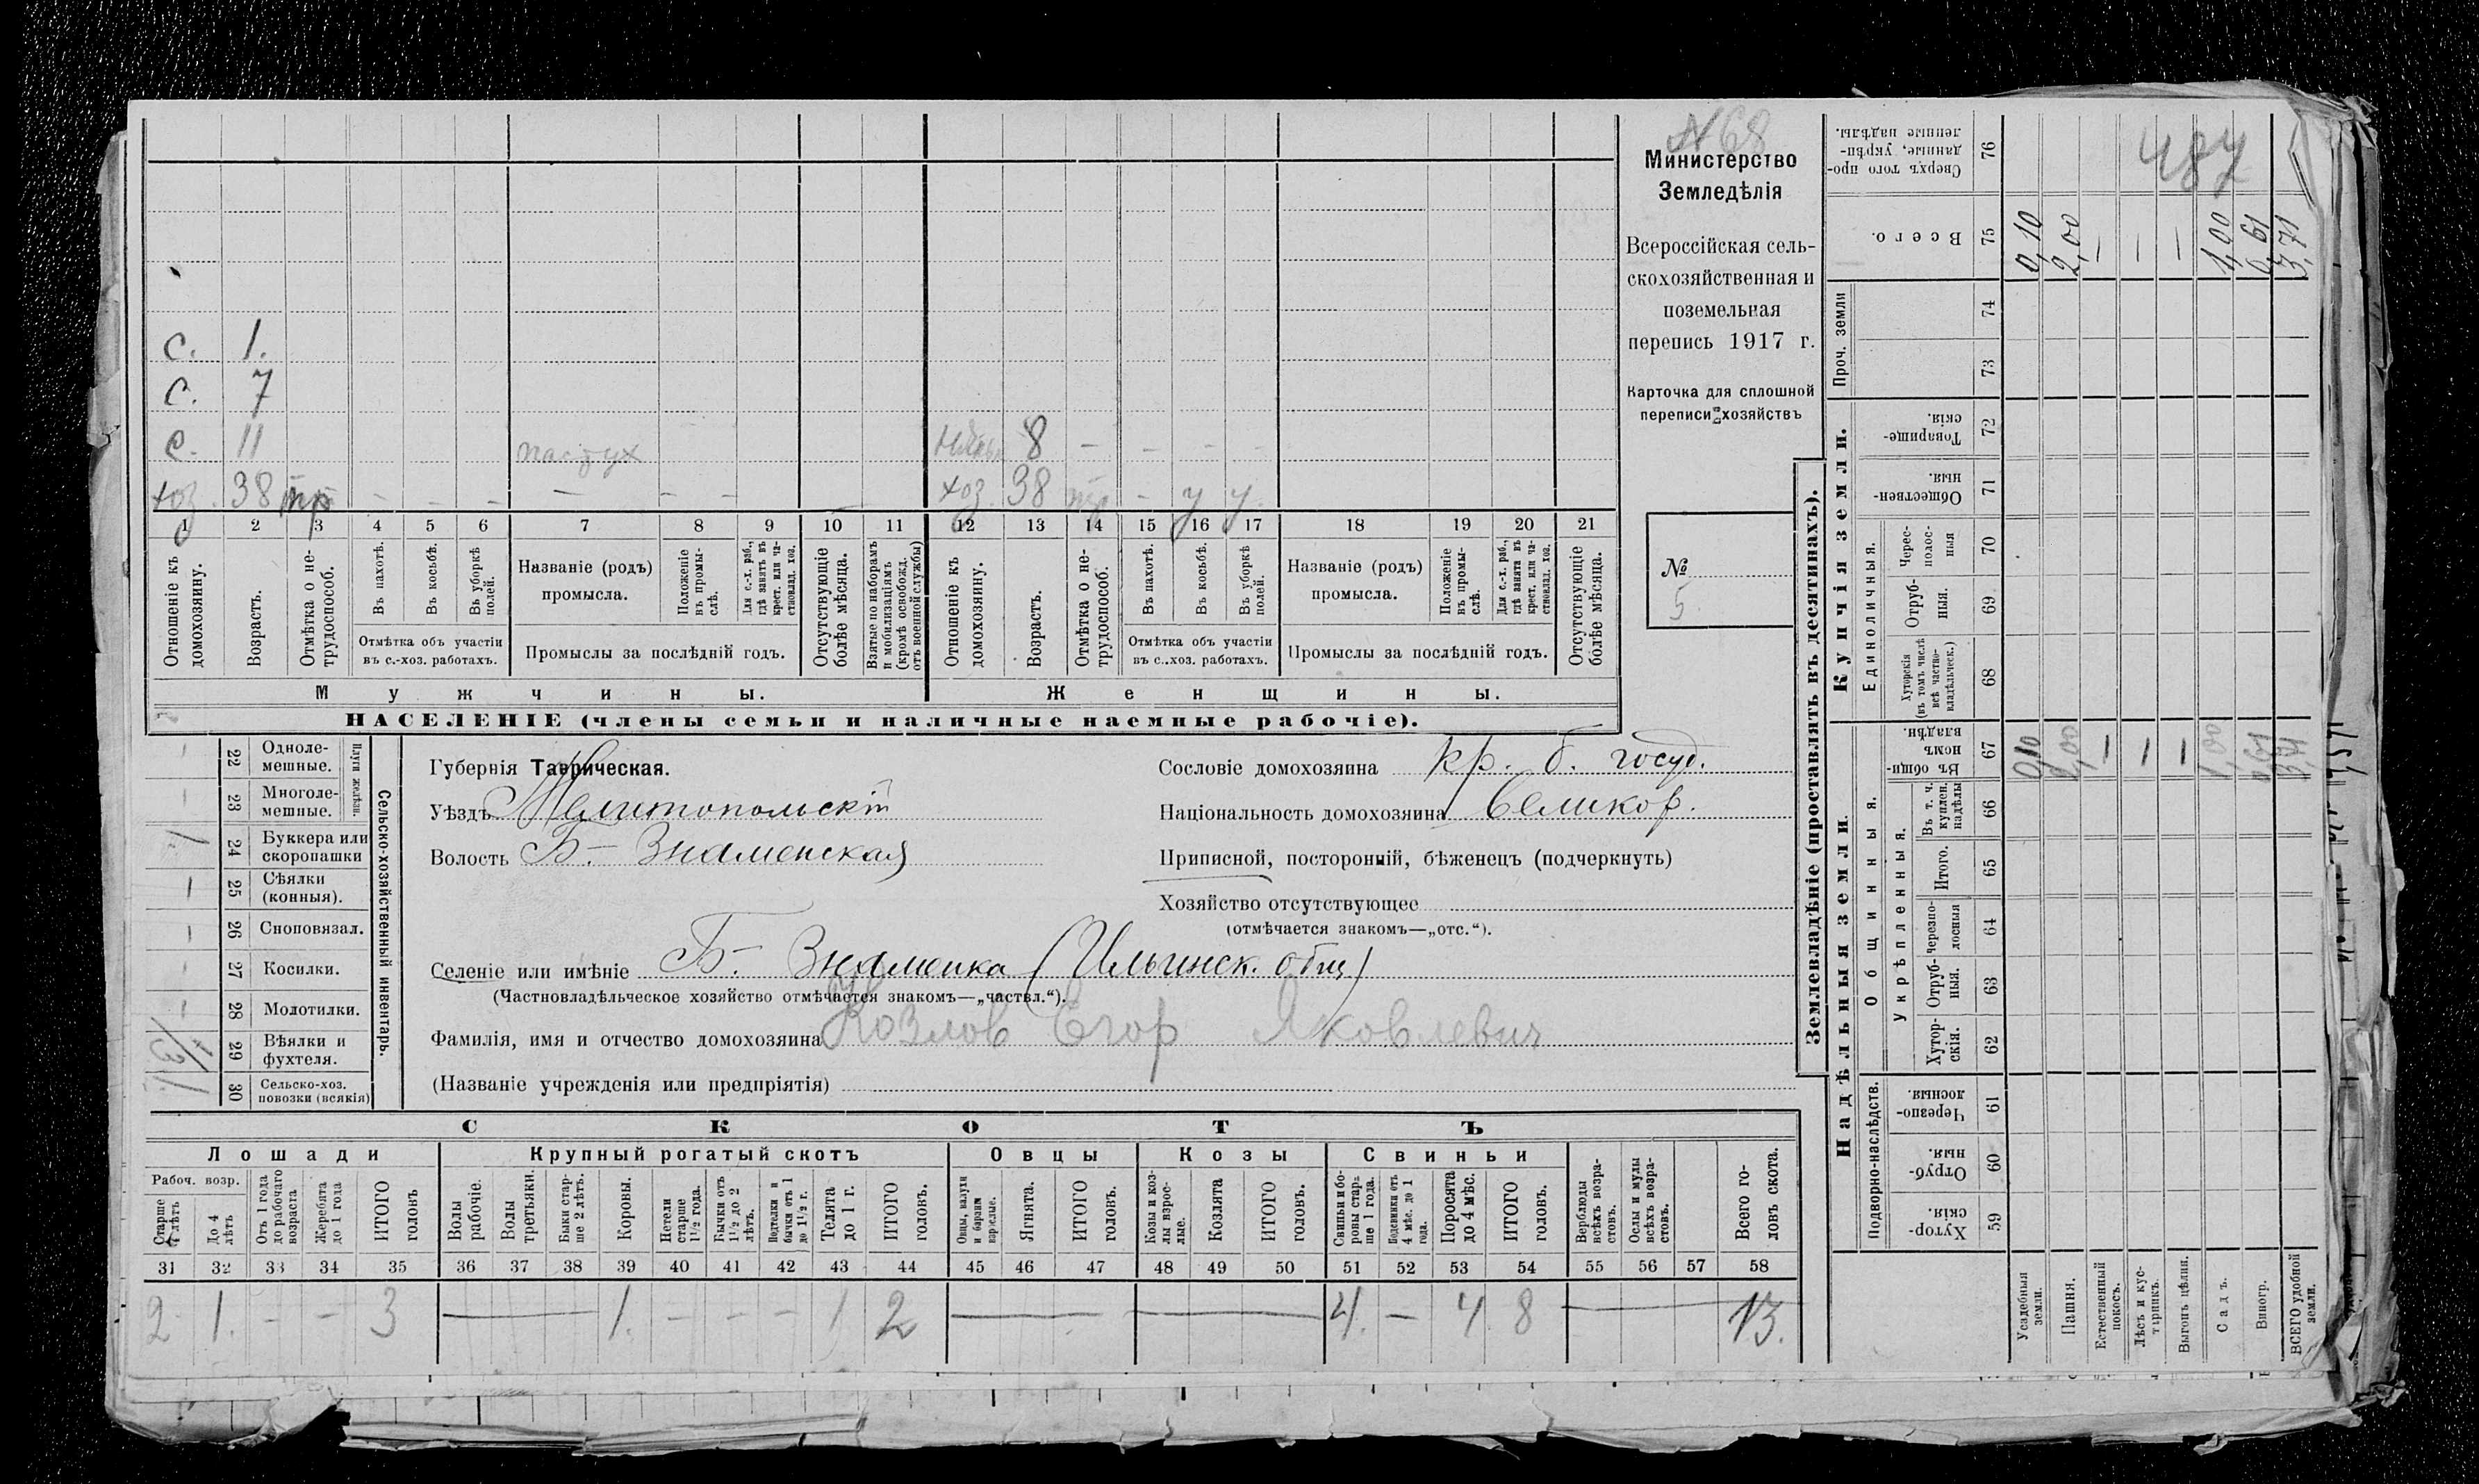 N 68
Министерство
Земледѣлія
Всероссійская сель-
скохозяйственная и
поземельная
перепись 1917 г.
Карточка для сплошной
переписи хозяйствъ
№
5
487
с. 1.
с. 7
с. 11 пастух 8 — — — —
хоз. 38 тр — — — — — — — хоз. 38 тр. — у у.
1 2 3 4 5 6 7 8 9 10 11 12 13 14 15 16 17 18 19 20 21
Отношеніе къ домохозяину.
Возрастъ.
Отмѣтка о не-трудоспособ.
Въ пахотѣ.
Въ косьбѣ.
Въ уборкѣ полей.
Отмѣтка объ участіи
въ с.-хоз. работахъ.
Названіе (родъ)
промысла.
Положеніе въ промы-слѣ.
Для с.-х. раб., гдѣ занятъ въ крест. или ча-стновлад. хоз.
Промыслы за послѣдній годъ.
Отсутствующіе болѣе мѣсяца.
Взятые по наборамъ и мобилизаціямъ (кромѣ освобожд. отъ военной службы)
Отношеніе къ домохозяину.
Возрастъ.
Отмѣтка о не-трудоспособ.
Въ пахотѣ.
Въ косьбѣ.
Въ уборкѣ полей.
Отмѣтка объ участіи
въ с.-хоз. работахъ.
Названіе (родъ)
промысла.
Положеніе въ промы-слѣ.
Для с.-х. раб., гдѣ занята въ крест. или ча-стновлад. хоз.
Промыслы за послѣдній годъ.
Отсутствующіе болѣе мѣсяца.
Мужчины.
Женщины.
НАСЕЛЕНІЕ (члены семьи и наличные наемные рабочіе).
Сельско-хозяйственный инвентарь.
Плуги желѣзн.
— 22 Одноле-мешные.
— 23 Многоле-мешные.
24 Буккера или скоропашки
— 25 Сѣялки (конныя).
— 26 Сноповязал.
— 27 Косилки.
— 28 Молотилки.
1/3 29 Вѣялки и фухтеля.
1 30 Сельско-хоз. повозки (всякія)
Губернія Таврическая.
Уѣздъ Мелитопольскій
Волость Б.- Знаменская
Сословіе домохозяина кр. б. госуд.
Національность домохозяина великор.
Приписной, посторонній, бѣженецъ (подчеркнуть)
Хозяйство отсутствующее
(отмѣчается знакомъ—„отс.“).
Селеніе или имѣніе Б.- Знаменка (Ильинск. общ)
(Частновладѣльческое хозяйство отмѣчается знакомъ—„частвл.“).
Фамилія, имя и отчество домохозяина Козлов Егор Яковлевич
(Названіе учрежденія или предпріятія)
СКОТЪ
Лошади
Крупный рогатый скотъ
Овцы
Козы
Свиньи
Рабоч. возр.
Старше 4 лѣтъ
До 4 лѣтъ
Отъ 1 года до рабочаго возраста
Жеребята до 1 года
ИТОГО головъ
Волы рабочіе.
Волы третьяки.
Быки стар-ше 2 лѣтъ.
Коровы.
Нетели старше 1½ года.
Бычки отъ 1½ до 2 лѣтъ.
Подтелки и бычки отъ 1 до 1½ г.
Телята до 1 г.
ИТОГО головъ.
Овцы, валухи и бараны взрослые.
Ягнята.
ИТОГО головъ.
Козы и коз-лы взрос-лые.
Козлята
ИТОГО головъ.
Свиньи и бо-ровы стар-ше 1 года.
Подсвинки отъ 4 мѣс. до 1 года.
Поросята до 4 мѣс.
ИТОГО головъ.
Верблюды всѣхъ возра-стовъ.
Ослы и мулы всѣхъ возра-стовъ.
Всего го-ловъ скота.
31 32 33 34 35 36 37 38 39 40 41 42 43 44 45 46 47 48 49 50 51 52 53 54 55 56 57 58
2 1. — — 3 — 1. — — — 1 2 — — 4. — 4 8 — 13.
Землевладѣніе (проставлять въ десятинахъ).
Надѣльныя земли.
Купчія земли.
Проч. земли
Подворно-наслѣдств.
Общинныя.
Укрѣпленныя.
Единоличныя.
Хутор-скія. 59
Отруб-ныя 60
Черезпо-лосныя. 61
Хутор-скія. 62
Отруб-ныя. 63
Черезпо-лосныя 64
Итого. 65
Въ т. ч. куплен. надѣлы 66
Въ общи-номъ владѣн. 67
Хуторскія (въ томъ числѣ всѣ частно-владѣльческ.) 68
Отруб-ныя. 69
Черес-полос-ныя 70
Обществен-ныя. 71
Товарище-скія. 72
73
74
Всего. 75
Сверхъ того про-данные, укрѣп-ленные надѣлы. 76
Усадебныя земли. 0,10 0,10
Пашня. 2,00 2,00
Естественный покосъ. — —
Лѣсъ и кус-тарникъ. — —
Выгонъ цѣлин. — —
Садъ. 1,00 1,00
Виногр. 0,61 0,61
ВСЕГО удобной земли. 3,71 3,71